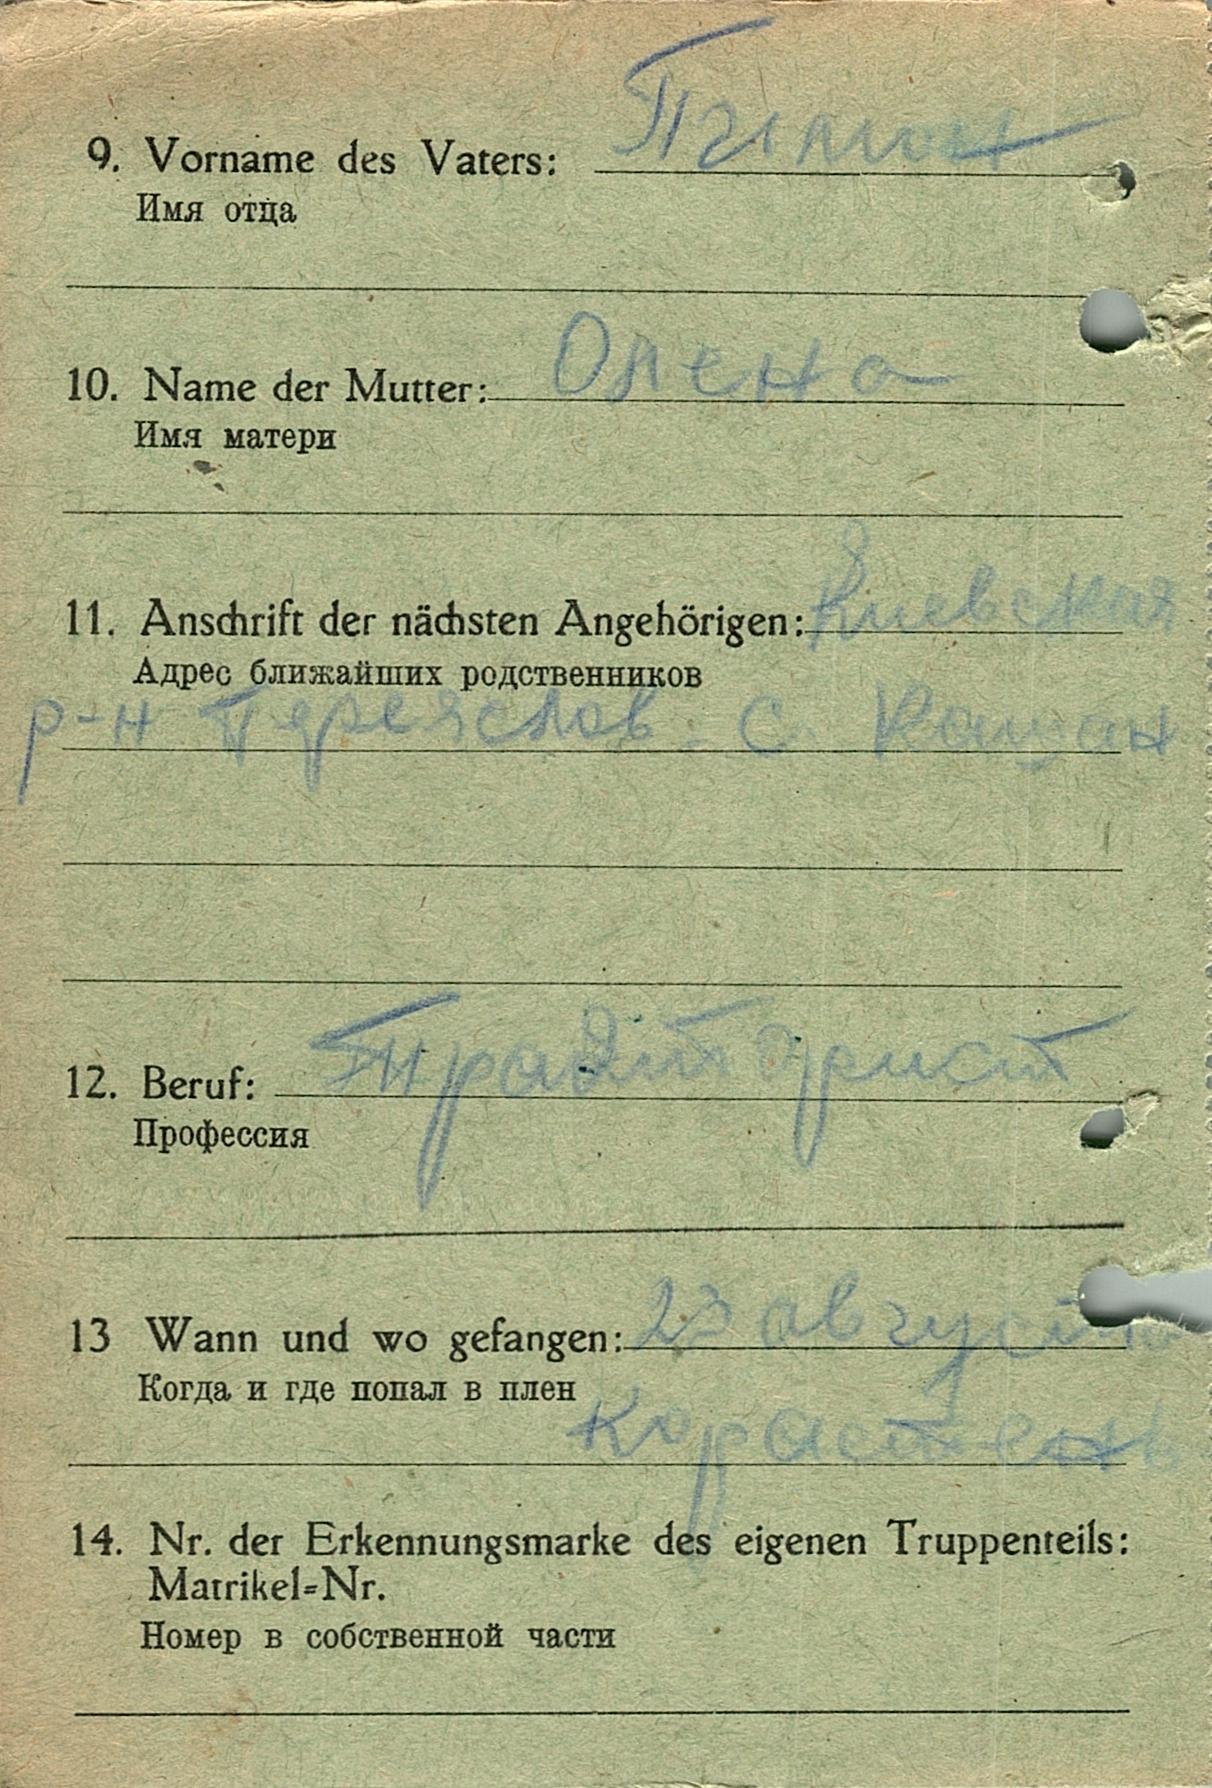 9. Vorname des Vaters:
Имя отца
10. Name der Mutter: Олена
Имя матери
11. Anschrift der nächsten Angehörigen: Киевская
Адрес ближайших родственников
р-н Переяслов с. Кашан
12. Beruf:
Профессия
13 Wann und wo gefangen: 23 августа
Когда и где попал в плен
Корастень
14. Nr. der Erkennungsmarke des eigenen Truppenteils:
Matrikel=Nr.
Номер в собственной части